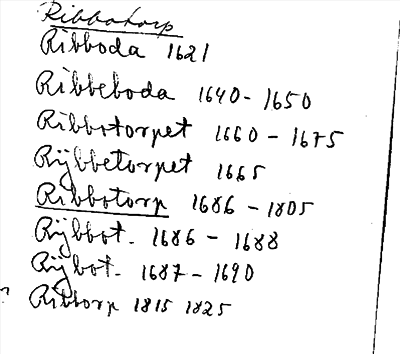 Ribbotorp
Ribboda 1621
Ribbeboda 1640-1650
Ribbotorpet 1660-1675
Rÿbbetorpet 1665
Ribbotorp 1686-1805
Rÿbbot. 1686-1688
Rÿbot. 1687-1690
? Ribtorp 1815 1825